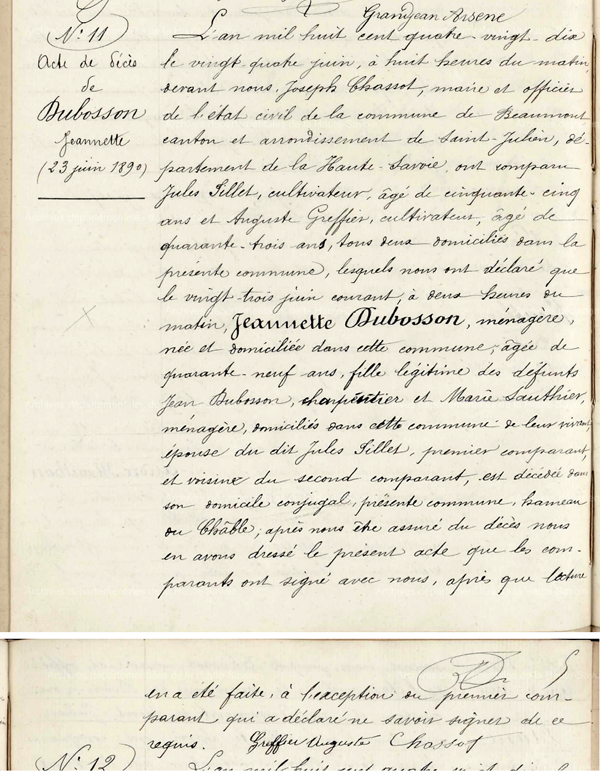 Grandjean Arsene
N° 11
Acte de décès
de
Dubosson
Jeannette
(23 juin 1890)
L'an mil huit cent quatre-vingt-dix
le vingt-quatre juin, à huit heures du matin,
devant nous, Joseph Chassot, maire et officier
de l'état civil de la commune de Beaumont
canton et arrondissement de Saint-Julien, dé-
partement de la Haute-Savoie, ont comparu
Jules Sillet, cultivateur, âgé de cinquante-cinq
ans et Auguste Greffier, cultivateur, âgé de
quarante-trois ans, tous deux domiciliés dans la
présente commune, lesquels nous ont déclaré que
le vingt-trois juin courant, à deux heures du
matin, Jeannette Dubosson, ménagère,
née et domiciliée dans cette commune, âgée de
quarante-neuf ans, fille légitime des défunts
Jean Dubosson, charpentier et Marie Sauthier,
ménagère, domiciliés dans cette commune de leur vivant,
épouse du dit Jules Sillet, premier comparant
et voisine du second comparant, est décédée dans
son domicile conjugal, présente commune, hameau
du Châble; après nous être assuré du décès nous
en avons dressé le présent acte que les com-
parants ont signé avec nous, après que lecture
en a été faite, à l'exception du premier com-
parant qui a déclaré ne savoir signer de ce
requis. Greffier Auguste Chassot
N° 12
L'an mil huit cent quatre